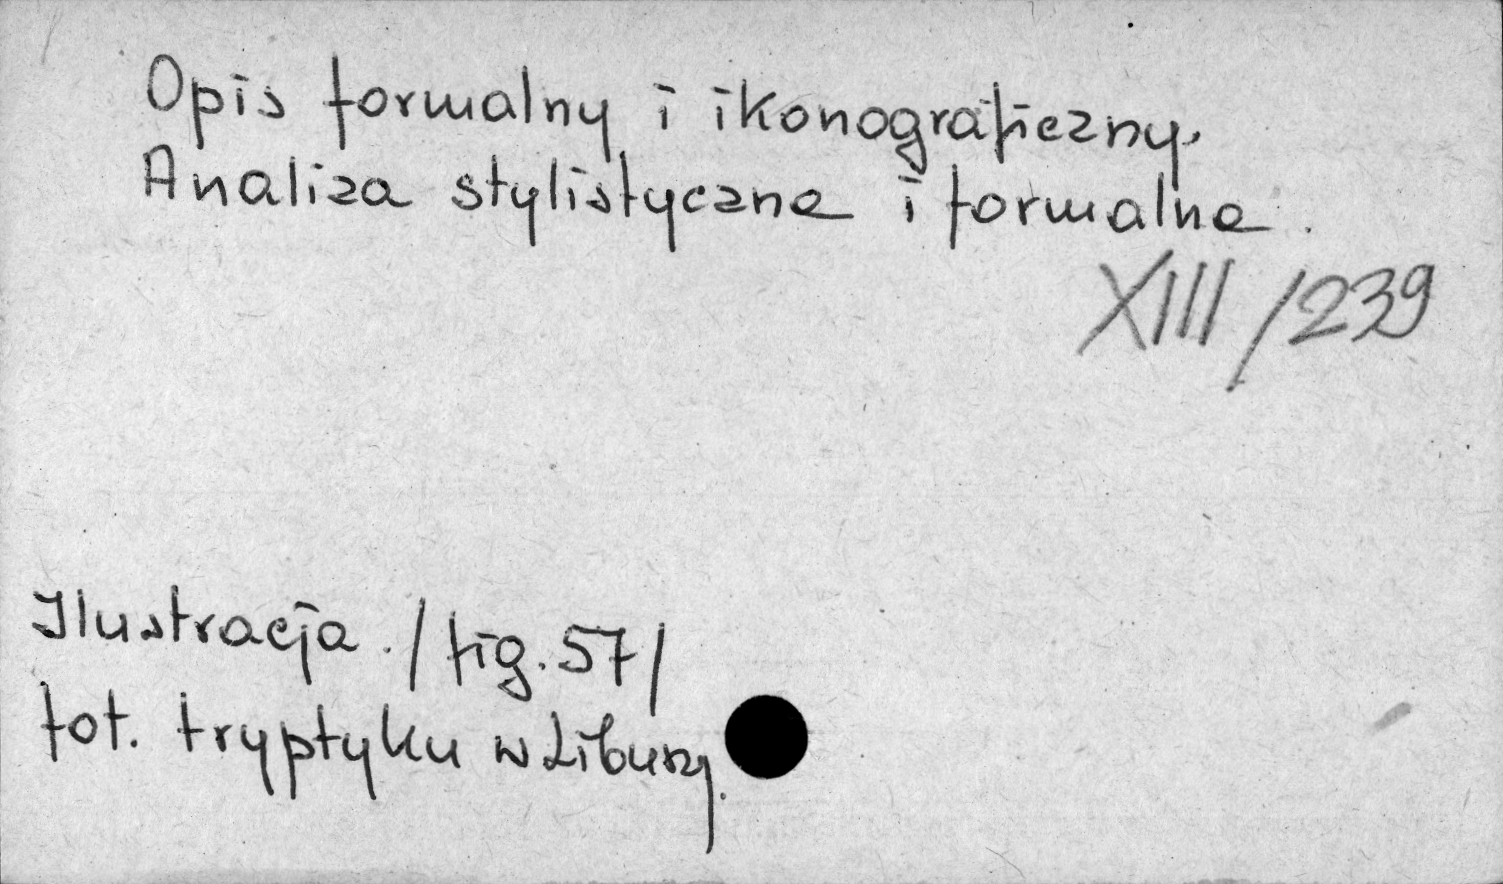 Opis formalny i ikonograficzny.
Analiza stylistyczna i formalna.
XIII/239
Ilustracja. /fig. 57/
fot. tryptyku w Libuszy.